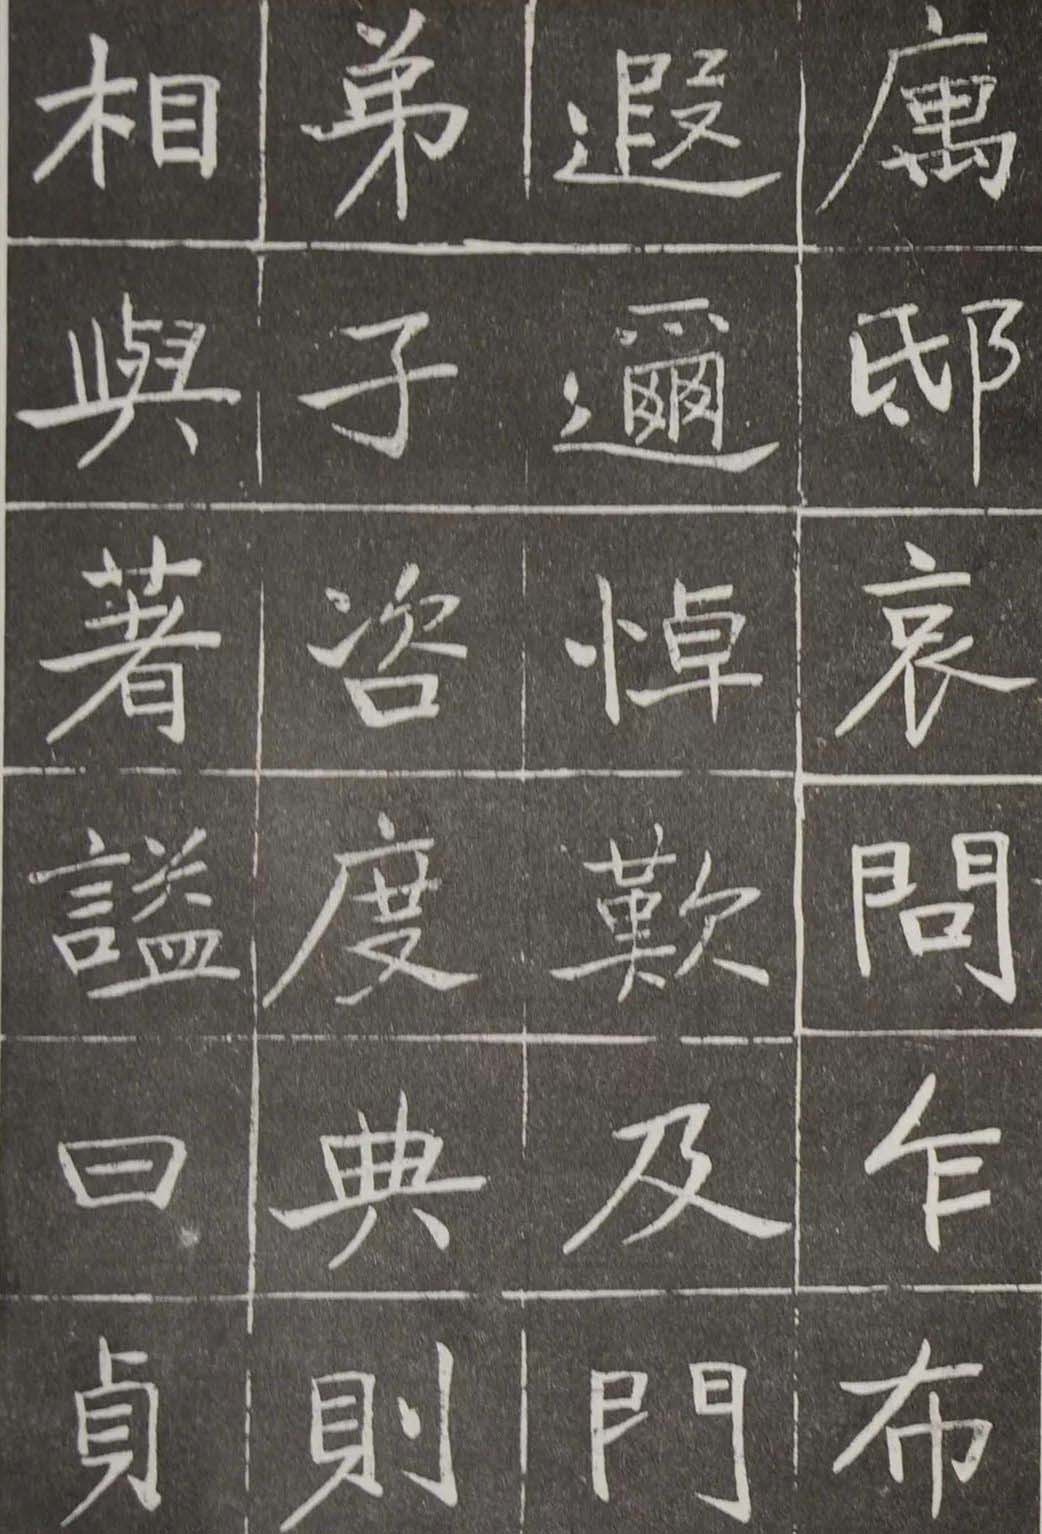 厲邸哀問乍布
遐邇悼歎及門
弟子咨度典則
相與著謚曰貞